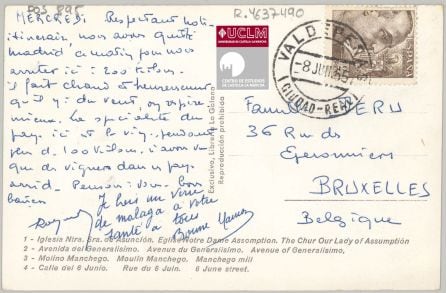 POS 895
R.4637490
MERCREDI. Respectant notre
itinéraire nous avons quitté
madrid ce matin pour nous
arrêter ici à 200 kilom.
Il fait chaud et heureusement
qu'il y a du vent, on respire
mieux. La spécialité du
pays, ici est le vin, pendant
plus de 100 kilom. à avons vu
que des vignes dans un pays
arrid. Pensons à vous. Bons
baisers
Raymond
Je bois un verre
de malaga à votre
santé à tous
Bonne
UCLM
UNIVERSIDAD DE CASTILLA-LA MANCHA
CENTRO DE ESTUDIOS
DE CASTILLA-LA MANCHA
Exclusivo, Librería La Gitana
Reproducción prohibida
VALDEPEÑAS
-8 JUN
(CIUDAD-REAL)
Famille PERU
36 Rue des
Eperonniers
BRUXELLES
Belgique
1 - Iglesia Ntra. Sra. de Asunción. Eglise Notre Dame Assomption. The Chur Our Lady of Assumption
2 - Avenida del Generalísimo. Avenue du Generalísimo. Avenue of Generalísimo,
3 - Molino Manchego. Moulin Manchego. Manchego mill
4 - Calle del 6 Junio. Rue du 6 Juin. 6 June street.